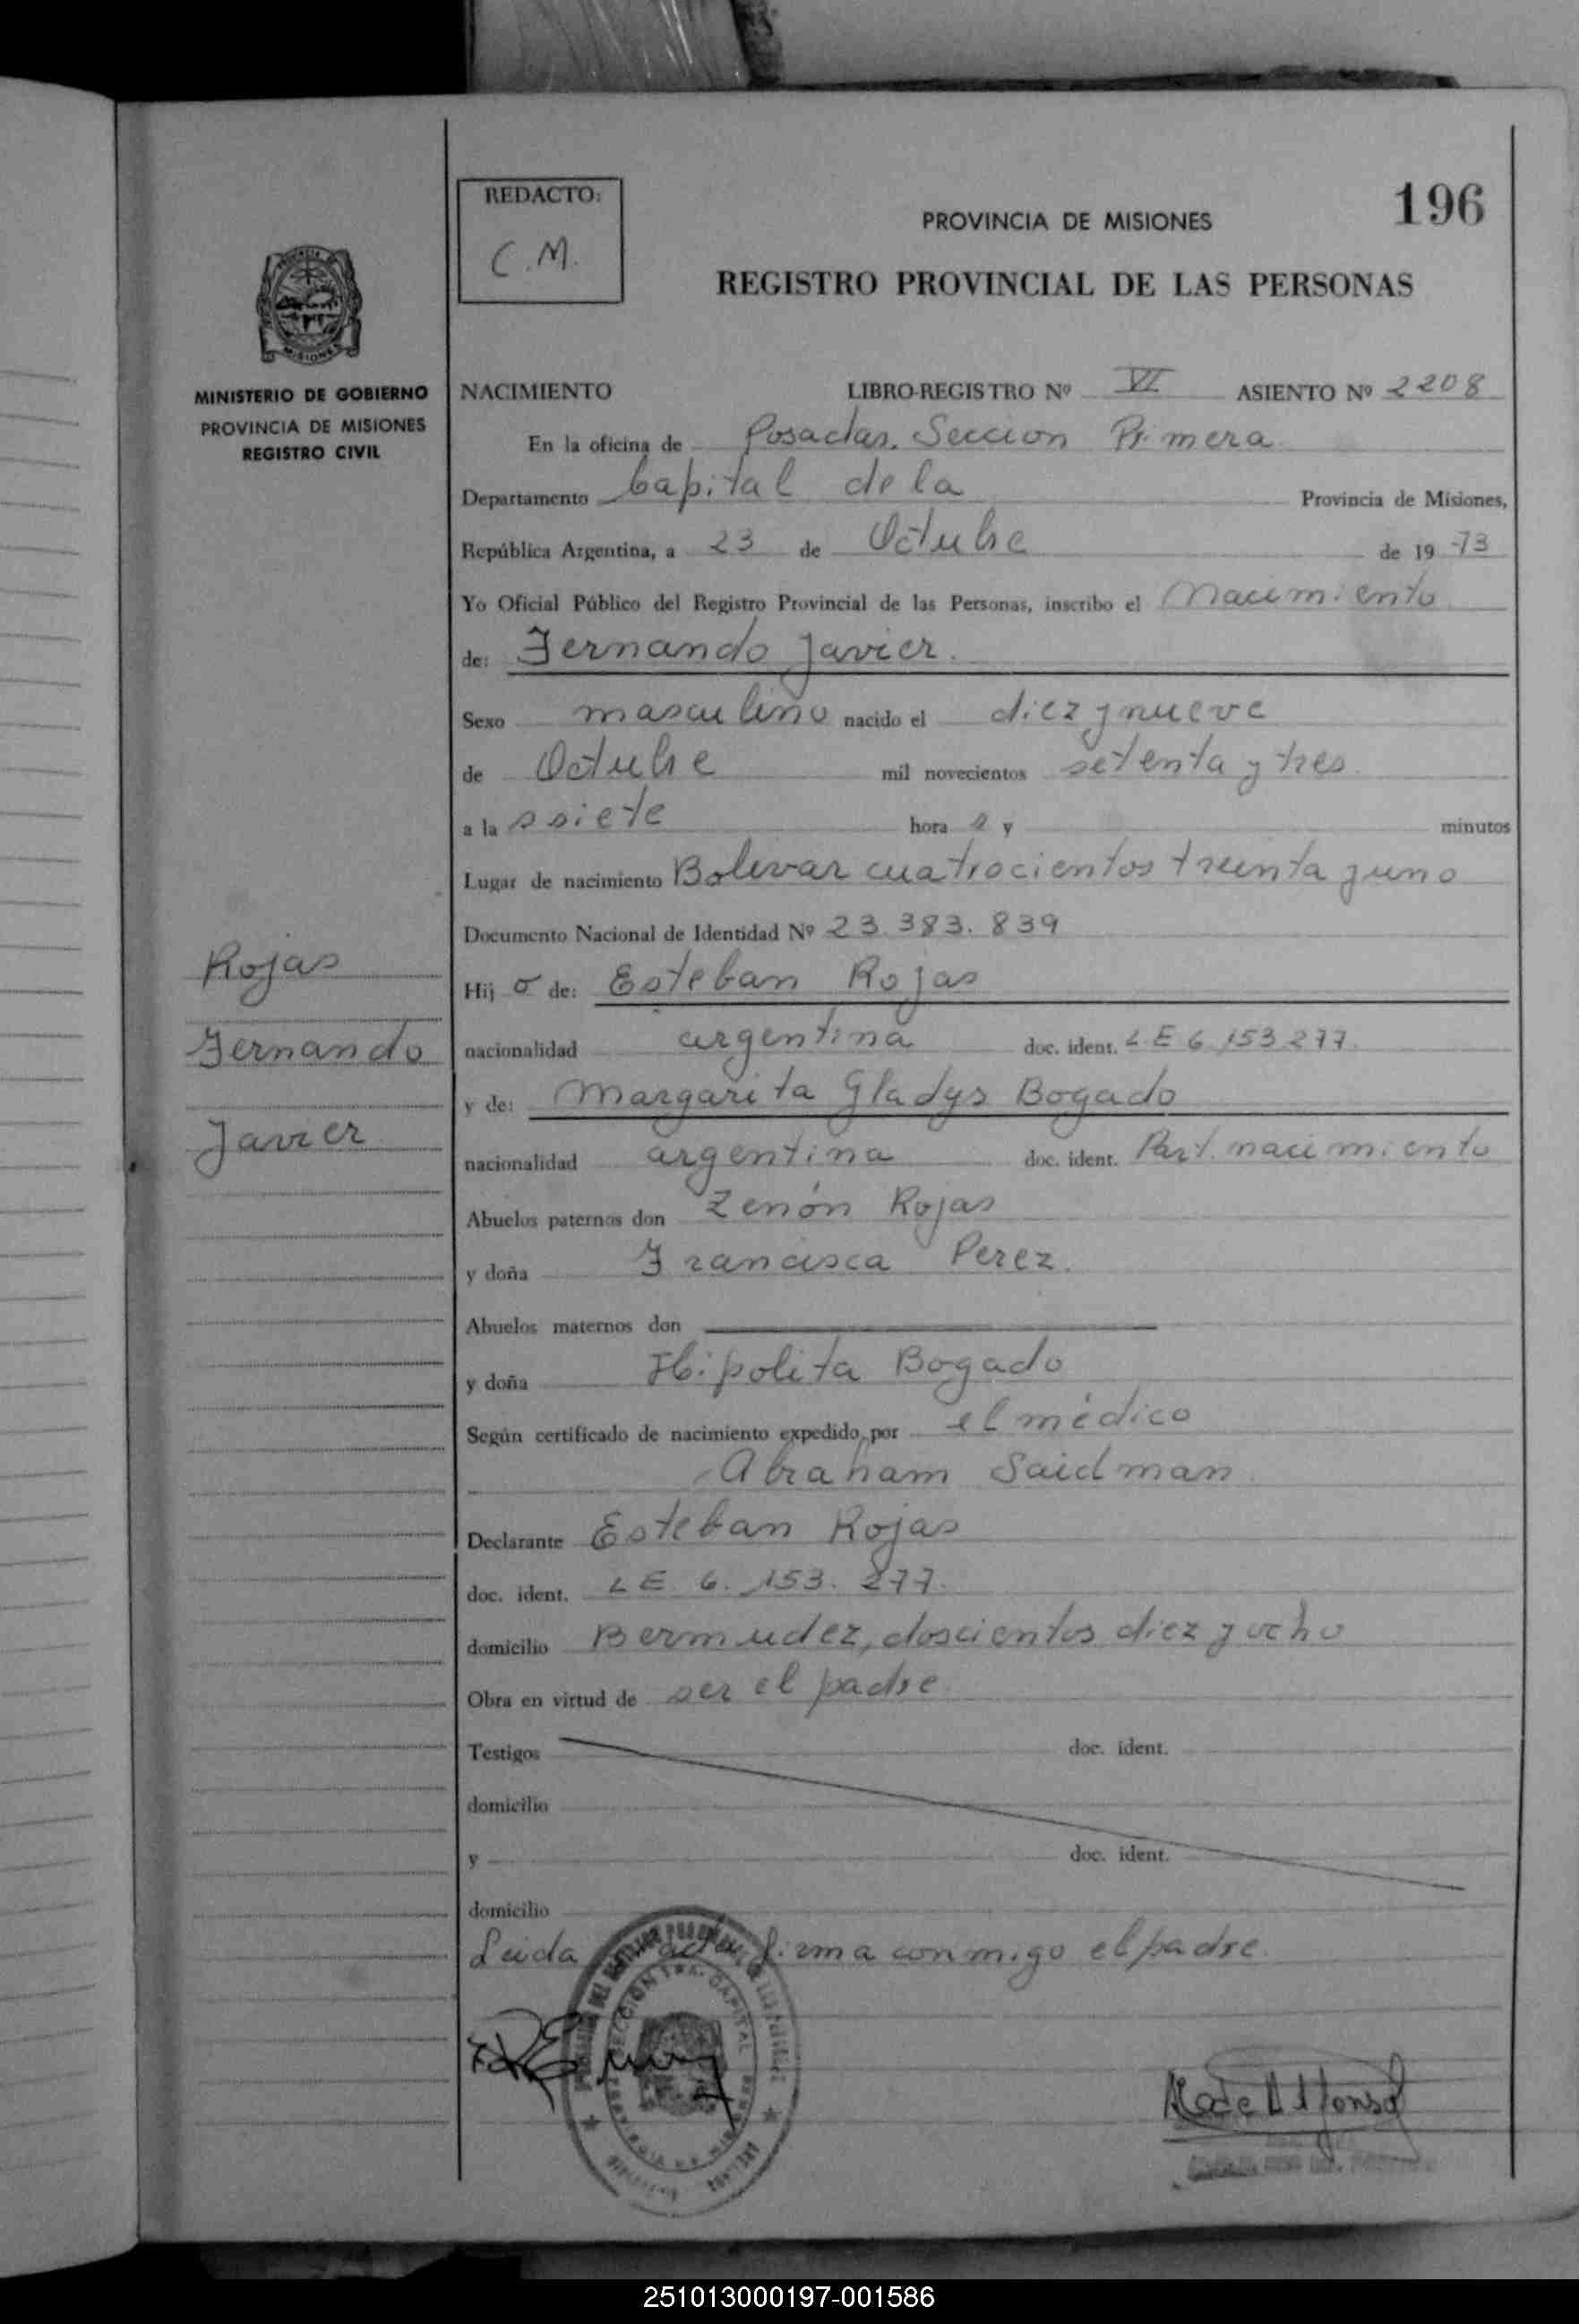 196
REDACTO:
C.M.
PROVINCIA DE MISIONES
REGISTRO PROVINCIAL DE LAS PERSONAS
MISIONES
MINISTERIO DE GOBIERNO
PROVINCIA DE MISIONES
REGISTRO CIVIL
NACIMIENTO LIBRO-REGISTRO Nº VI ASIENTO Nº 2208
En la oficina de Posadas. Seccion Primera
Departamento Capital de la Provincia de Misiones,
República Argentina, a 23 de Octubre de 1973
Yo Oficial Público del Registro Provincial de las Personas, inscribo el Nacimiento
de: Fernando Javier.
Sexo masculino nacido el diez y nueve
de Octubre mil novecientos setenta y tres.
a la s siete hora s y minutos
Lugar de nacimiento Bolivar cuatrocientos treinta y uno
Documento Nacional de Identidad Nº 23.383.839
Rojas
Fernando
Javier
Hij o de: Esteban Rojas
nacionalidad argentina doc. ident. L E 6.153.277.
y de: Margarita Gladys Bogado
nacionalidad argentina doc. ident. Part. nacimiento
Abuelos paternos don Zenón Rojas
y doña Francisca Perez.
Abuelos maternos don
y doña Hipolita Bogado
Según certificado de nacimiento expedido por el médico
Abraham Saidman.
Declarante Esteban Rojas
doc. ident. L E 6.153.277.
domicilio Bermudez, doscientos diez y ocho
Obra en virtud de ser el padre.
Testigos doc. ident.
domicilio
y doc. ident.
domicilio
Leida firma conmigo el padre.
SECCION 1RA. CAPITAL
251013000197-001586